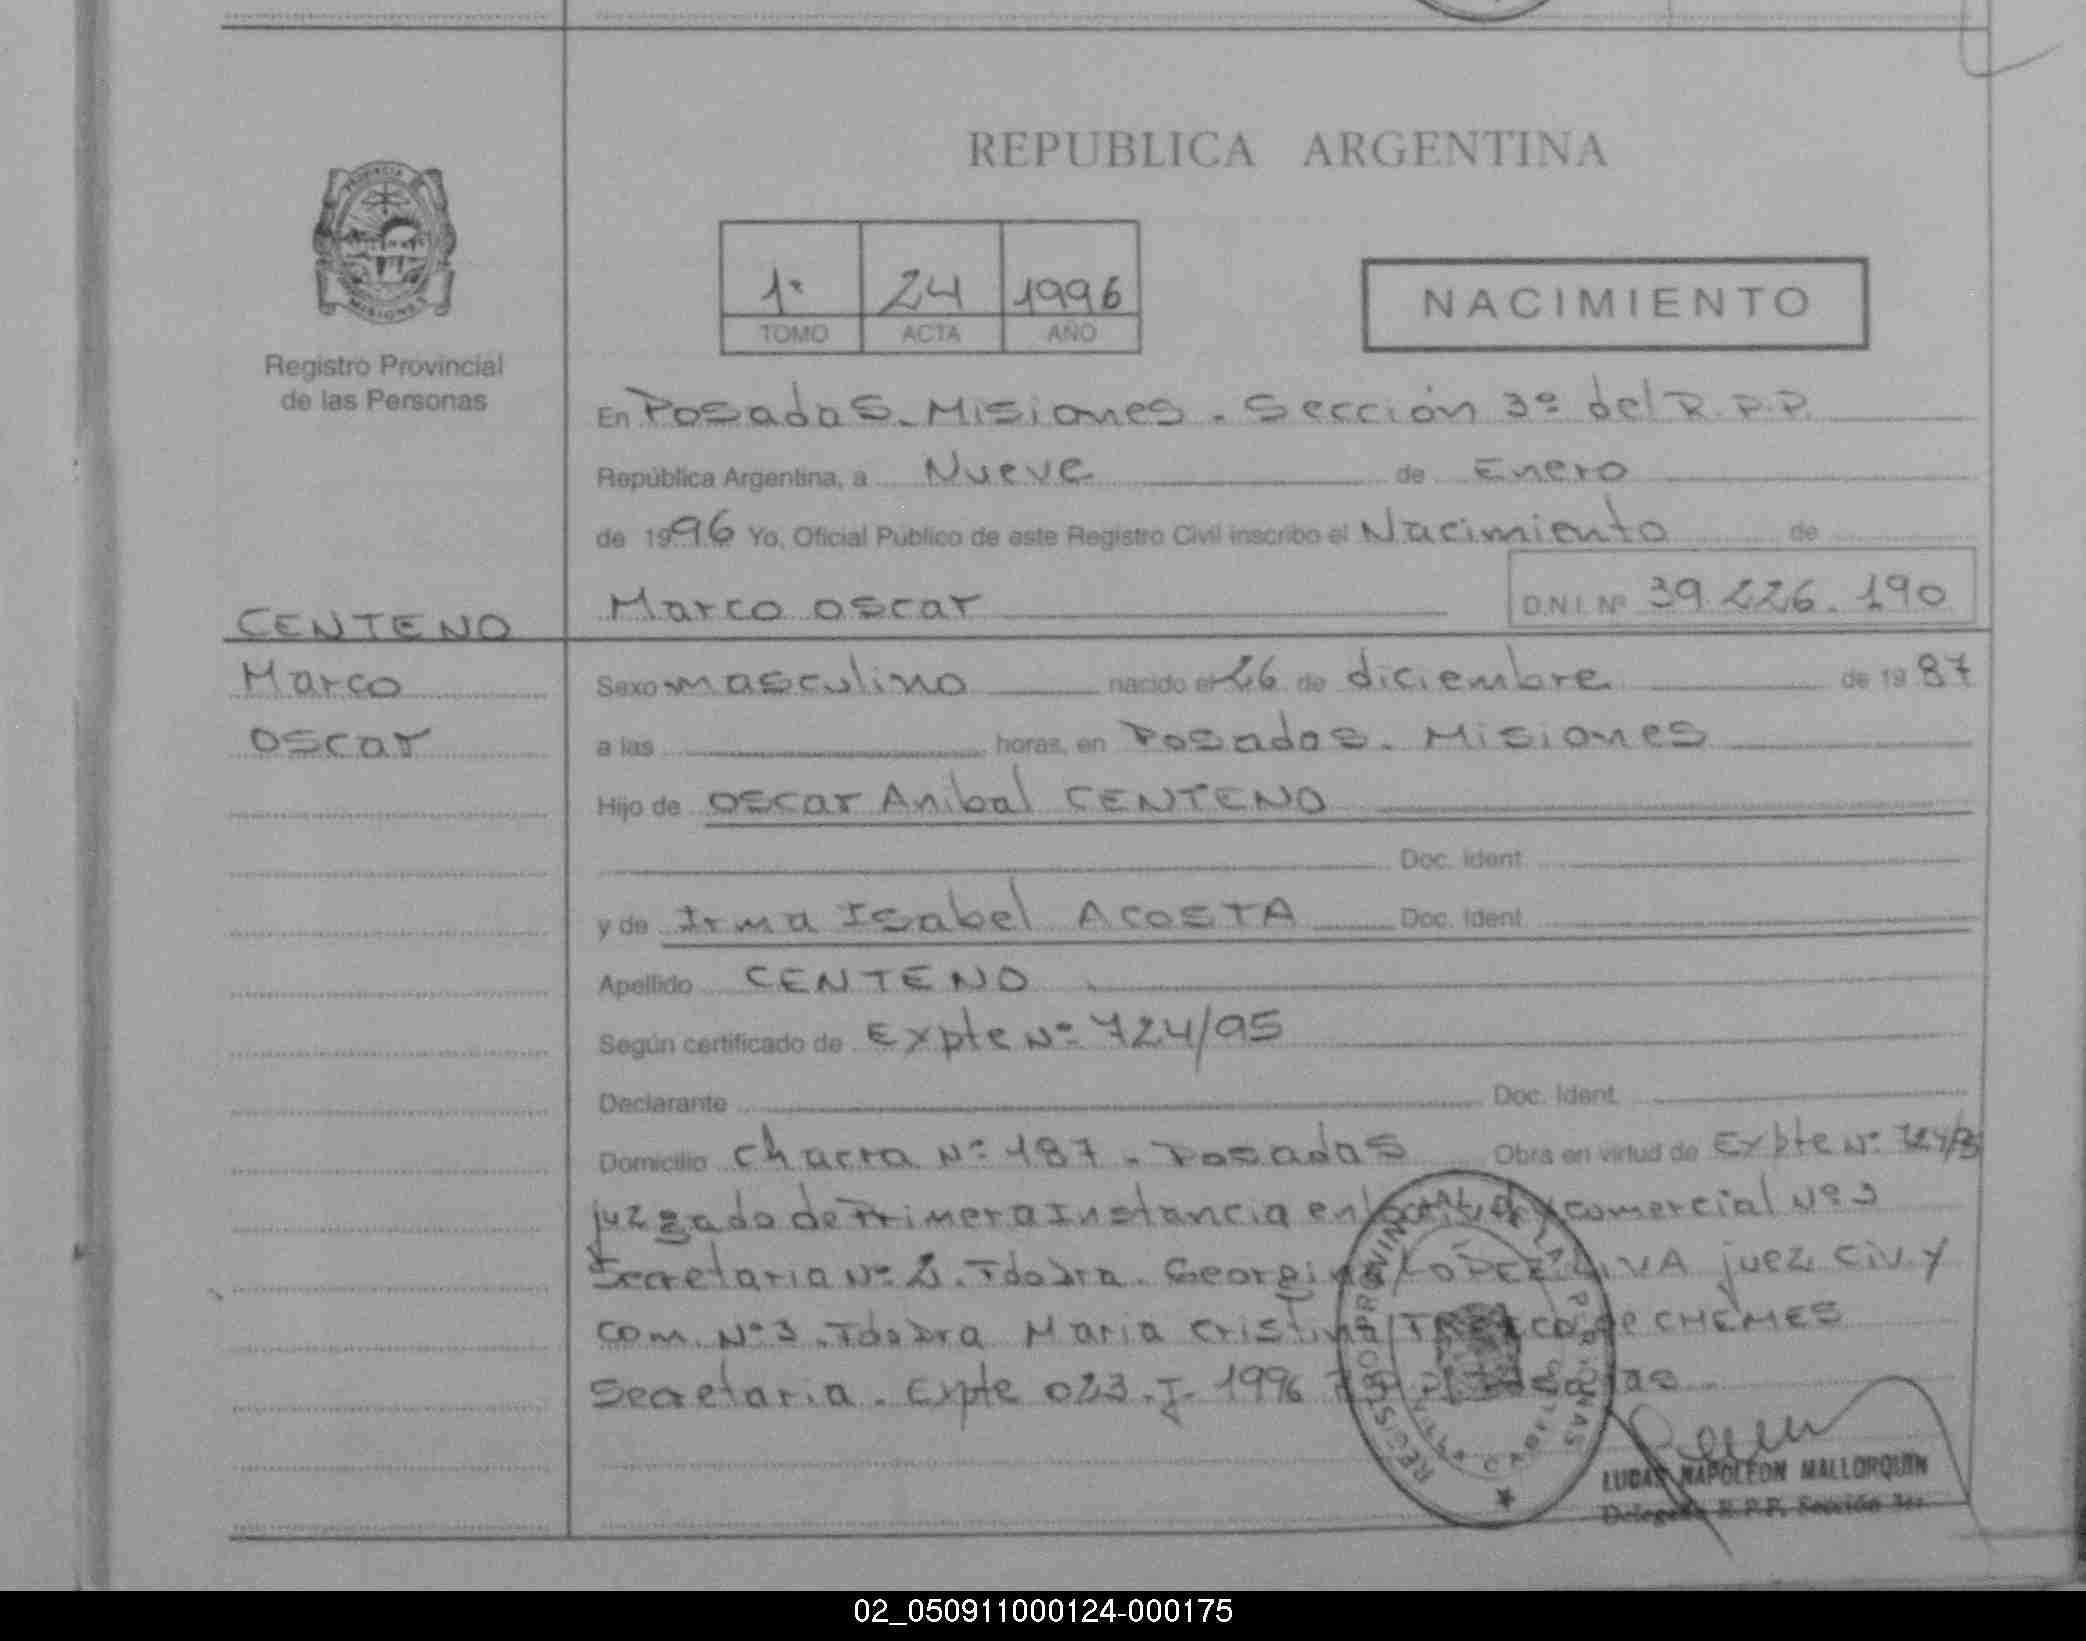 REPUBLICA ARGENTINA
PROVINCIA
MISIONES
Registro Provincial
de las Personas
1º 24 1996
TOMO ACTA AÑO
NACIMIENTO
En Posadas - Misiones - Sección 3º del R.P.P.
República Argentina, a Nueve de Enero
de 1996 Yo, Oficial Público de este Registro Civil inscribo el Nacimiento de
Marco Oscar D.N.I. Nº 39.226.190
CENTENO
Marco
Oscar
Sexo masculino nacido el 26 de diciembre de 1987
a las horas, en Posadas - Misiones
Hijo de Oscar Anibal CENTENO
Doc. Ident.
y de Irma Isabel ACOSTA Doc. Ident.
Apellido CENTENO
Según certificado de Expte Nº 724/95
Declarante Doc. Ident.
Domicilio Chacra Nº 187 - Posadas Obra en virtud de Expte Nº 724/95
juzgado de Primera Instancia en lo Civil y Comercial Nº 3
Secretaria Nº 2. Fdo Dra. Georgina LOPEZ LIVA juez Civ. y
Com. Nº 3. Fdo Dra Maria Cristina de CHEMES
Secretaria. Expte 023-I-1996
REGISTRO PROVINCIAL DE LAS PERSONAS
LUCAS NAPOLEON MALLORQUIN
Delegado R.P.P. Sección 3ra
02_050911000124-000175